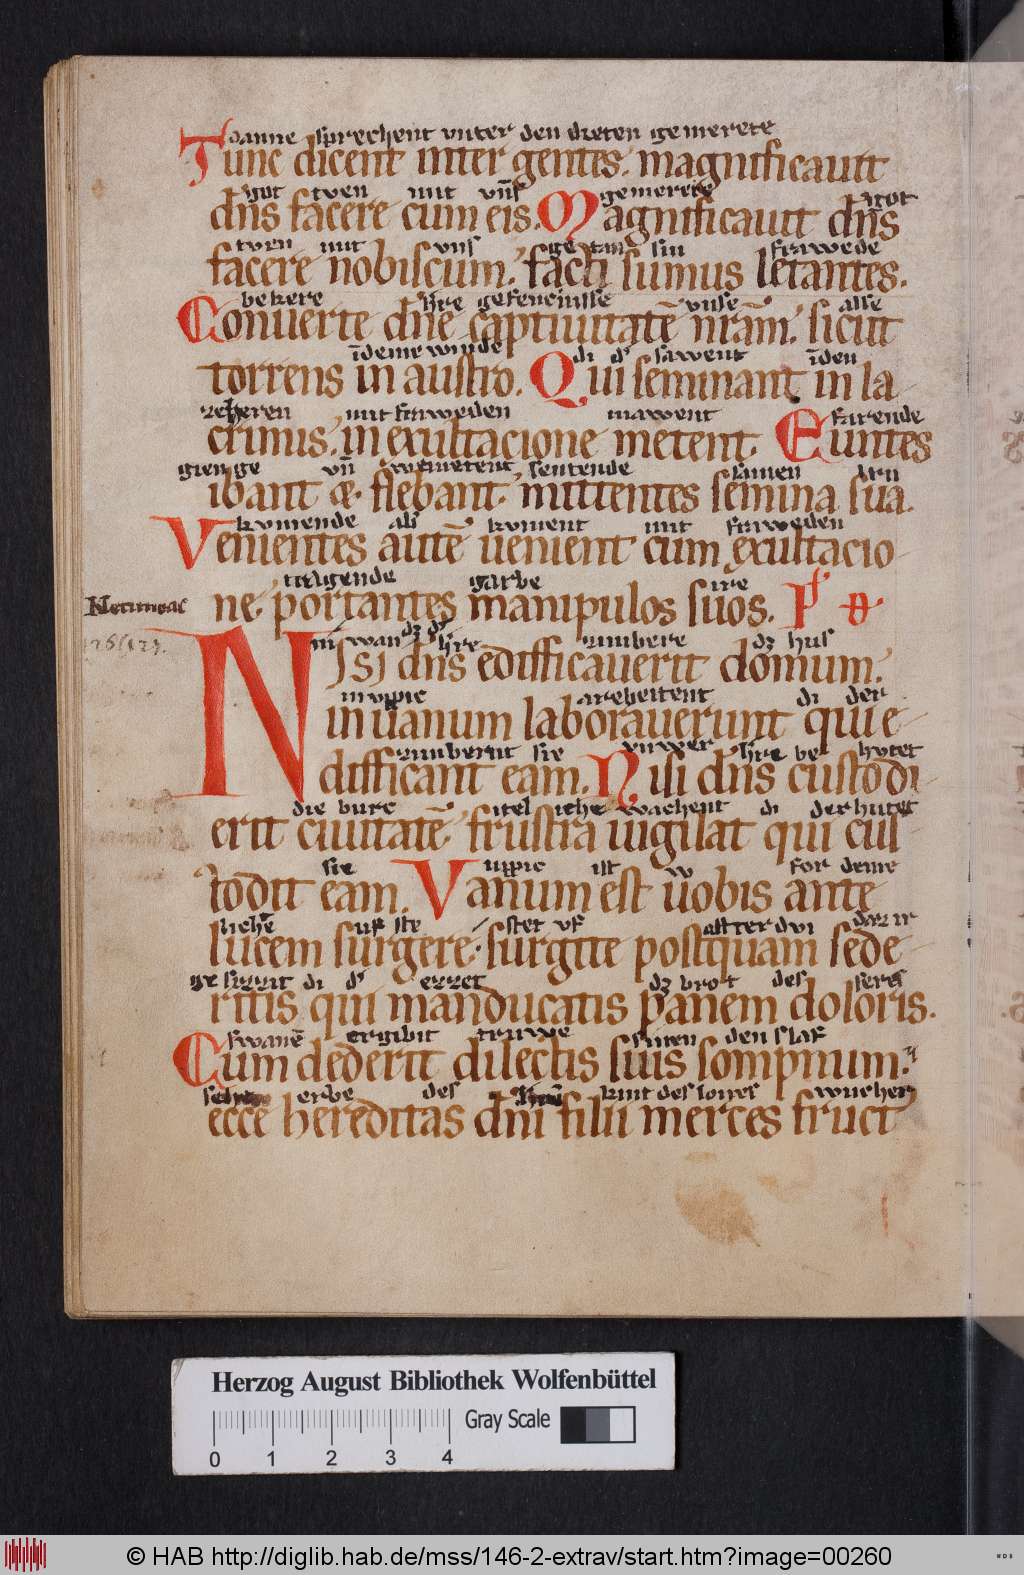 danne sprechent vnter den dieten gemerete
Tunc dicent inter gentes. magnificauit
got tven mit vn̄s gemerete got
dn̄s facere cum eis. Magnificauit dn̄s
tven mit vns ge tan sin frawede
facere nobiscum. facti sumus letantes.
bekere hre gefencnisse vnse alse
Conuerte dn̄e captiuitatē nr̄am. sicut
īdeme winde di d' sawent īden
torrens in austro. Qui seminant in la
zeheren mit fraweden mawent farende
crimis. in exultacione metent. Euntes
gienge vn̄ wemetent sentende samen
ibant &. flebant. mittentes semina sua.
kumende ab' kument mit fraweden
Venientes autē uenient cum exultacio
tragende garbe ire
ne. portantes manipulos suos. P
126(127).
wan dz d' hre zimbere dz hus
NISI dn̄s edifficauerit domum.
arebeitent di der
in uanum laborauerunt qui e
zimbernt sie hre be hutet
difficant eam. Nisi dn̄s custodi
die burc itel iche wachent di der hutet
erit ciuitatē. frustra uigilat qui cus
sie vppic ist for deme
todit eam. Vanum est uobis ante
uf ste stet vf
lucem surgere. surgite postquam sede
di d' ezzet dz brot des seres
ritis qui manducatis panem doloris.
swanē ergibit truwe sinen den slaf
Cum dederit dilectis suis sompnum.
erbe des kint des lones wucher
ecce hereditas dn̄i filii merces fruct
Herzog August Bibliothek Wolfenbüttel
Gray Scale
0 1 2 3 4
© HAB http://diglib.hab.de/mss/146-2-extrav/start.htm?image=00260